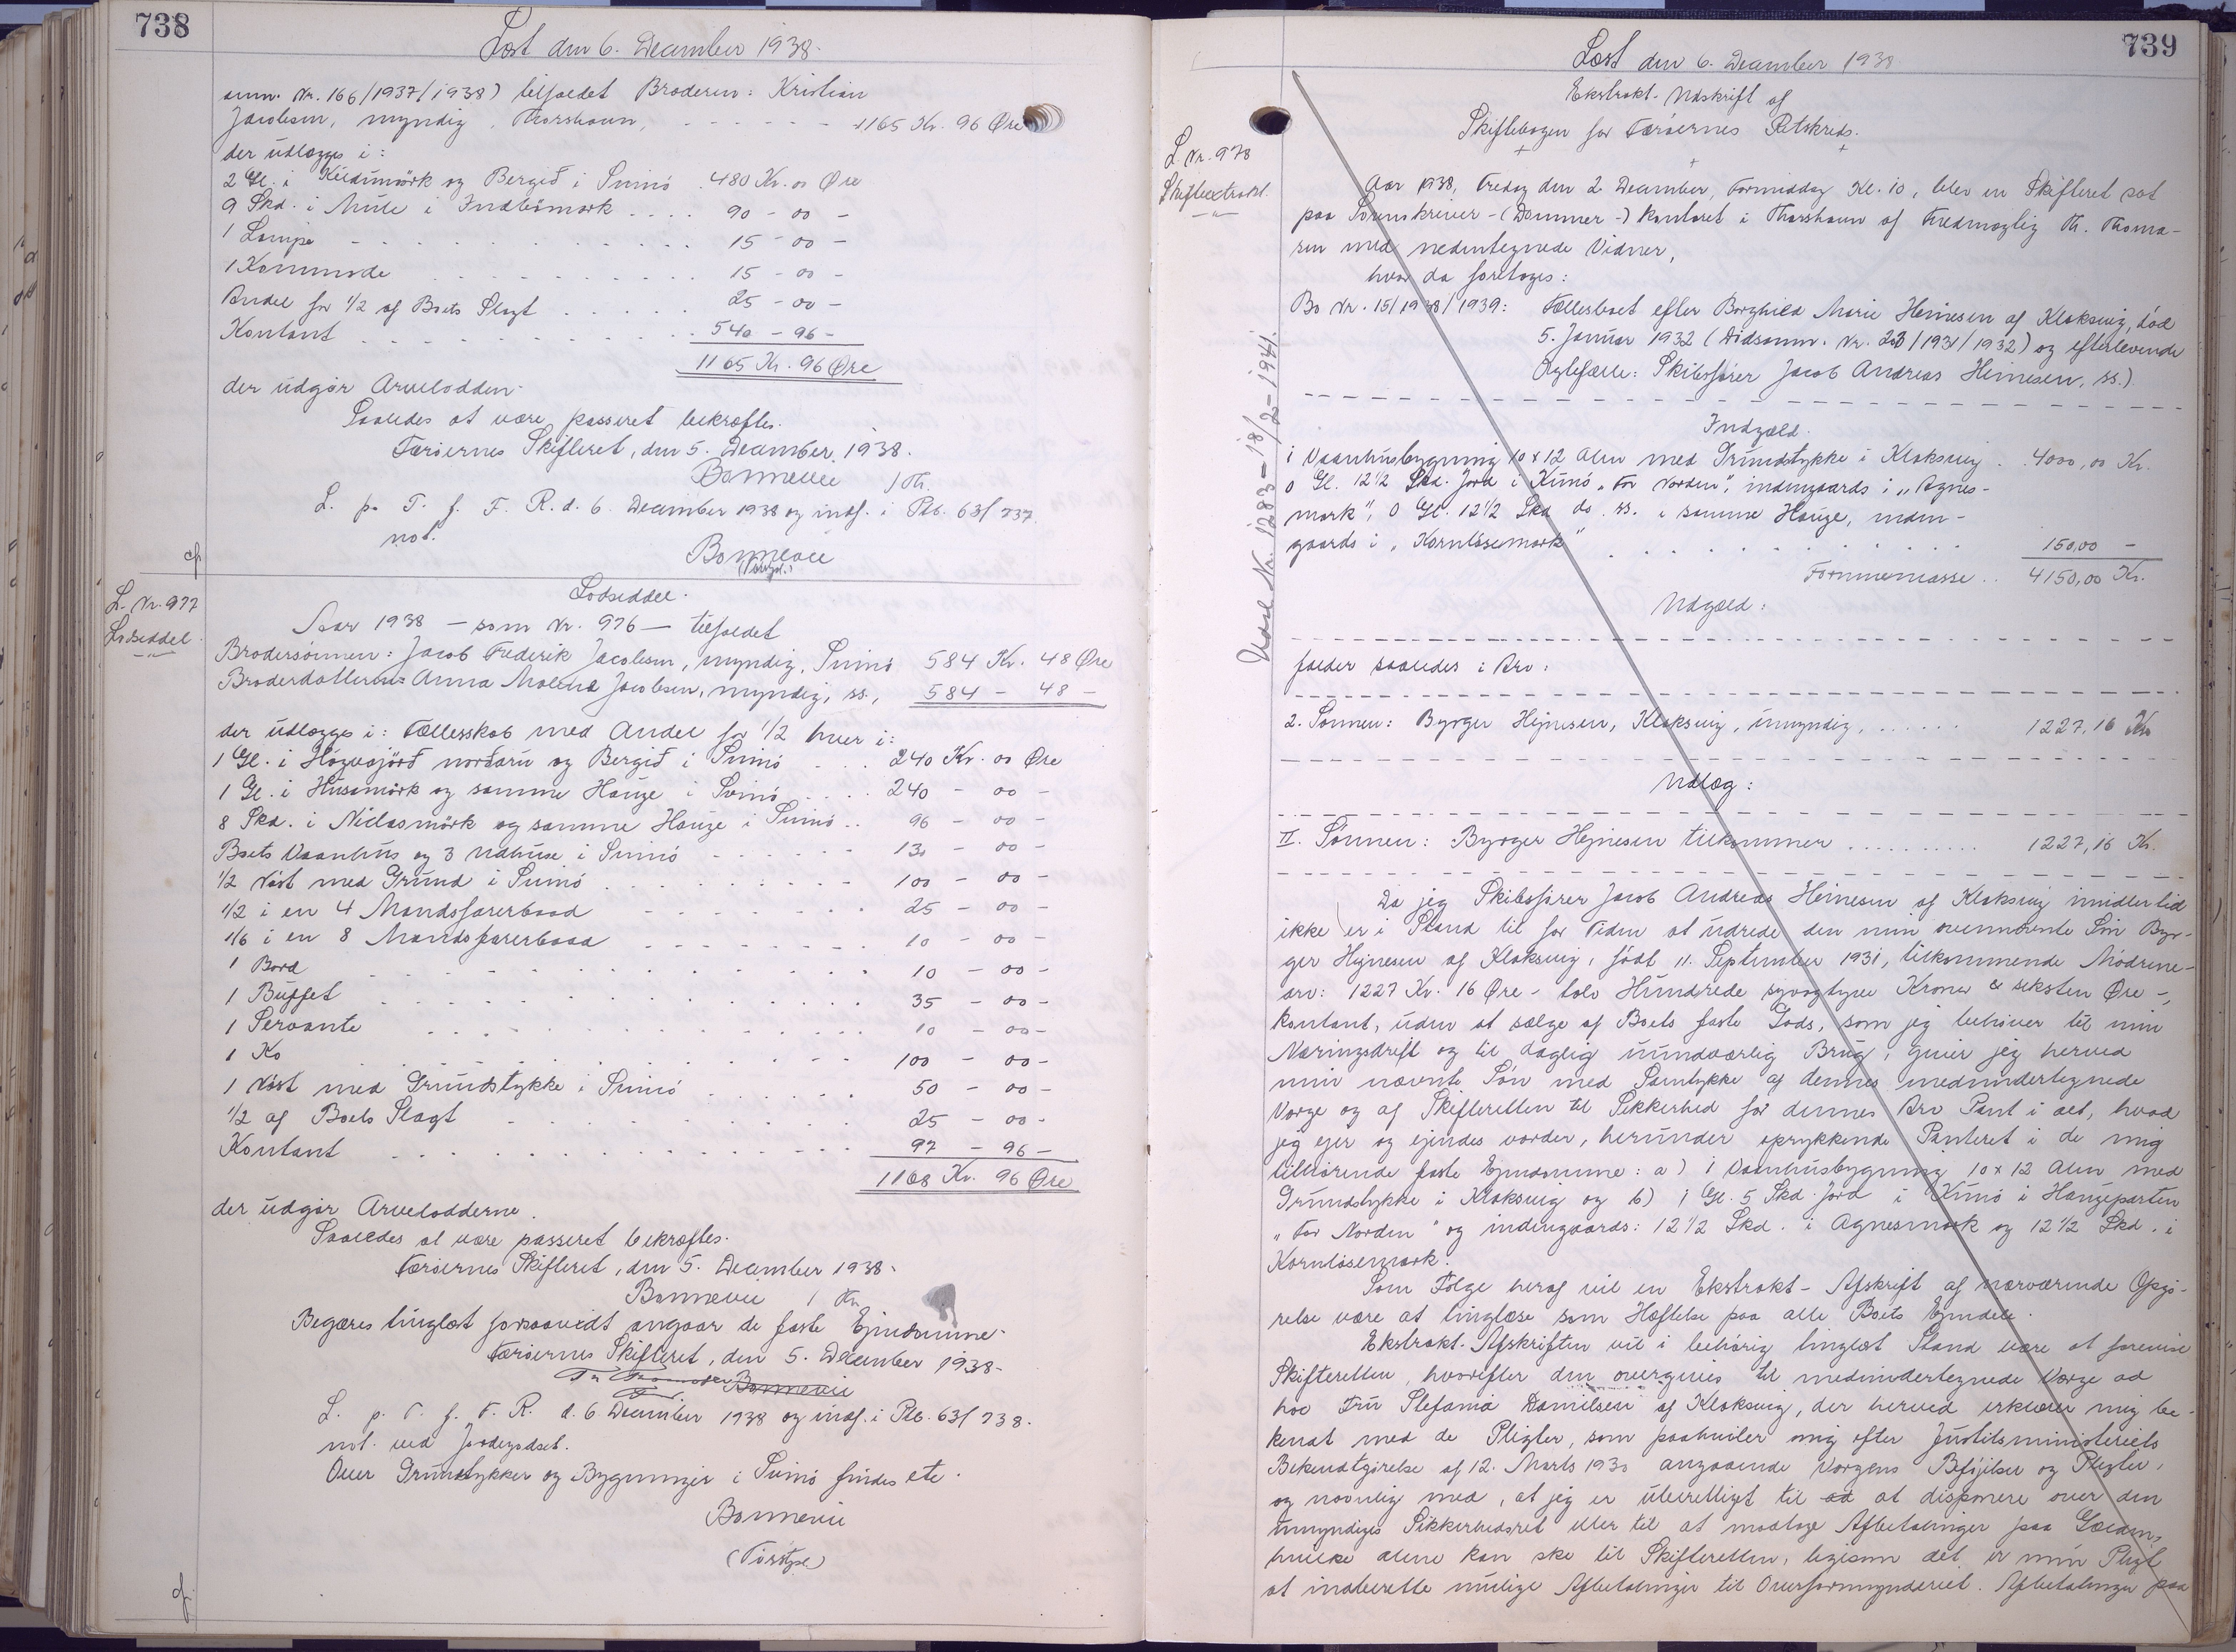 738
Læst den 6. December 1938.
anm. Nr. 166/1937/1938) tilfaldet Broderen: Kristian
Jacobsen, myndig, Thorshavn, 1165 Kr. 96 Øre
der udlægges i:
2 Gl. i og Bergið i Svinö 480 Kr. 00 Øre
9 Skd. i Múle i 90 - 00 -
1 Lampe 15 - 00 -
1 Kommode 15 - 00 -
Andel for 1/2 af Boets Slagt 25 - 00 -
Kontant 540 - 96 -
1165 Kr. 96 Øre
der udgør Arvelodden.
Saaledes at være passeret bekræftes.
Færøernes Skifteret, den 5. December 1938.
Bonnevie / Th.
L. p. T. f. F. R. d. 6. December 1938 og indf. i Ptb. 63/737.
not.
Bonnevie
cf.
L. Nr. 977
Lodseddel.
Lodseddel.
Aar 1938 — som Nr. 976 — tilfaldet
Brodersönnen: Jacob Frederik Jacobsen, myndig, Svinö 584 Kr. 48 Øre
Broderdatteren: Anna Malena Jacobsen, myndig, ss., 584 - 48 -
der udlægges i: Fællesskab med Andel for 1/2 hver i:
1 Gl. i Högvajörð norðaru og Bergið i Svinö 240 Kr. 00 Øre
1 Gl. i Húsamörk og samme Hauge i Svinö 240 - 00 -
8 Skd. i Niclasmörk og samme Hauge i Svinö 96 - 00 -
Boets Vaanhus og 3 Udhuse i Svinö 130 - 00 -
1/2 Nöst med Grund i Svinö 100 - 00 -
1/2 i en 4 Mandsfarerbaad 25 - 00 -
1/6 i en 8 Mandsfarerbaad 10 - 00 -
1 Bord 10 - 00 -
1 Buffet 35 - 00 -
1 Servante 10 - 00 -
1 Ko 100 - 00 -
1 Nöst med Grundstykke i Svinö 50 - 00 -
1/2 af Boets Slagt 25 - 00 -
Kontant 97 - 96 -
1168 Kr. 96 Øre
der udgør Arvelodderne.
Saaledes at være passeret bekræftes.
Færøernes Skifteret, den 5. December 1938.
Bonnevie / Th.
Begæres tinglæst forsaavidt angaar de faste Ejendomme.
Færøernes Skifteret, den 5. December 1938.
Bonnevie
L. p. T. f. F. R. d. 6 December 1938 og indf. i Ptb. 63/738.
not. ved Jordegodset.
Over Grundstykker og Bygninger i Svinö findes etc.
Bonnevie
cf.
739
Læst den 6. December 1938.
Ekstrakt-Udskrift af
Skiftebogen for Færöernes Retskreds.
L. Nr. 978
Skifteextrakt.
Udsl. Nr. 1283 - 18/2 - 1941.
Aar 1938, Fredag den 2 December, Formiddag Kl. 10, blev en Skifteret sat
paa Sorenskriver-(Dommer-) kontoret i Thorshavn af Fuldmægtig Th. Thoma-
sen med nedentegnede Vidner,
hvor da foretoges:
Bo Nr. 15/1938/1939: Fællesboet efter Borghild Marie Heinesen af Klaksvig, död
5. Januar 1932 (Dödsanm. Nr. 203/1931/1932) og efterlevende
Ægtefælle: Skibsförer Jacob Andreas Heinesen, ss.)
Indgæld.
1 Vaanhusbygning 10 x 12 Alen med Grundstykke i Klaksvig 4000,00 Kr.
0 Gl. 12 1/2 Skd. Jord i Kunö „For Norden", indengaards i „Agnes-
mark", 0 Gl. 12 1/2 Skd do. ss. i samme Hauge, inden-
gaards i „Kornlösemark" 150,00 -
Formuemasse 4150,00 Kr.
Udgæld:
falder saaledes i Arv:
2. Sönnen: Byrger Hejnesen, Klaksvig, umyndig, 1227,16 Kr.
Udlæg:
II. Sönnen: Byrger Hejnesen tilkommer 1227,16 Kr.
Da jeg Skibsförer Jacob Andreas Heinesen af Klaksvig imidlertid
ikke er i Stand til for Tiden at udrede den min ovennævnte Sön Byr-
ger Hejnesen af Klaksvig, födt 11. September 1931, tilkommende Mödrene-
arv: 1227 Kr. 16 Øre - tolv Hundrede syvogtyve Kroner & seksten Øre -,
kontant, uden at sælge af Boets faste Gods, som jeg behöver til min
Næringsdrift og til daglig uundværlig Brug, giver jeg herved
min nævnte Sön med Samtykke af dennes medundertegnede
Værge og af Skifteretten til Sikkerhed for dennes Arv Pant i alt, hvad
jeg ejer og ejendes vorder, herunder oprykkende Panteret i de mig
tilhörende faste Ejendomme: a) 1 Vaanhusbygning 10 x 12 Alen med
Grundstykke i Klaksvig og b) 1 Gl. 5 Skd. Jord i Kunö i Haugeparten
„For Norden" og indengaards: 12 1/2 Skd. i Agnesmark og 12 1/2 Skd. i
Kornlösemark.
Som Fölge heraf vil en Ekstrakt-Afskrift af nærværende Opgö-
relse være at tinglæse som Hæftelse paa alle Boets Ejendele.
Ekstrakt-Afskriften vil i behörig tinglæst Stand være at forevise
Skifteretten, hvorefter den overgives til medundertegnede Værge ad
hoc Fru Stefania Danielsen af Klaksvig, der herved erklærer mig be-
kendt med de Pligter, som paahviler mig efter Justitsministeriets
Bekendtgörelse af 12. Marts 1930 angaaende Værgens Beföjelser og Pligter,
og navnlig med, at jeg er uberettiget til ad at disponere over den
umyndiges Sikkerhedsret eller til at modtage Afbetalinger paa Gælden,
hvilke alene kan ske til Skifteretten, ligesom det er min Pligt
at indberette mulige Afbetalinger til Overformynderiet. Afbetalinger paa